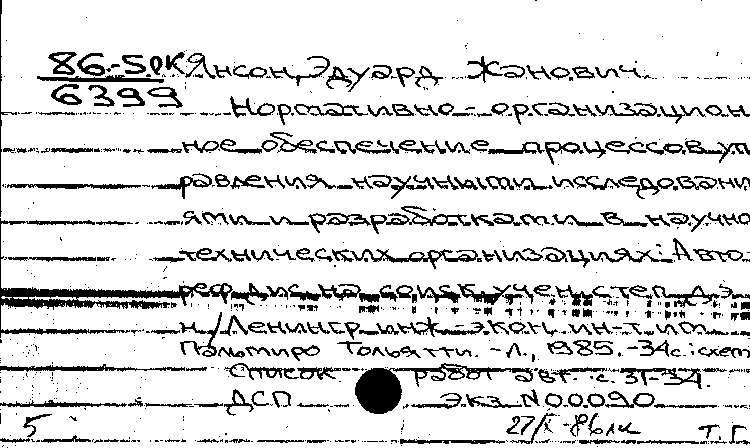 86.-5.ОК Янсон, Эдуард Жанович.
6399
Нормативно-организацион
ное обеспечение процессов уп
равления научными исследовани
ями и разработками в научно
технических организациях: Авто-
реф. дис. на соиск. учен. степ. д. э.
н / Ленингр. инж.-экон. ин-т. им.
Пальмиро Тольятти. - Л., 1985. - 34 с.: схем
Список работ авт.: с. 31-34.
ДСП Экз. N00090
5 27/X-86 Т. Г